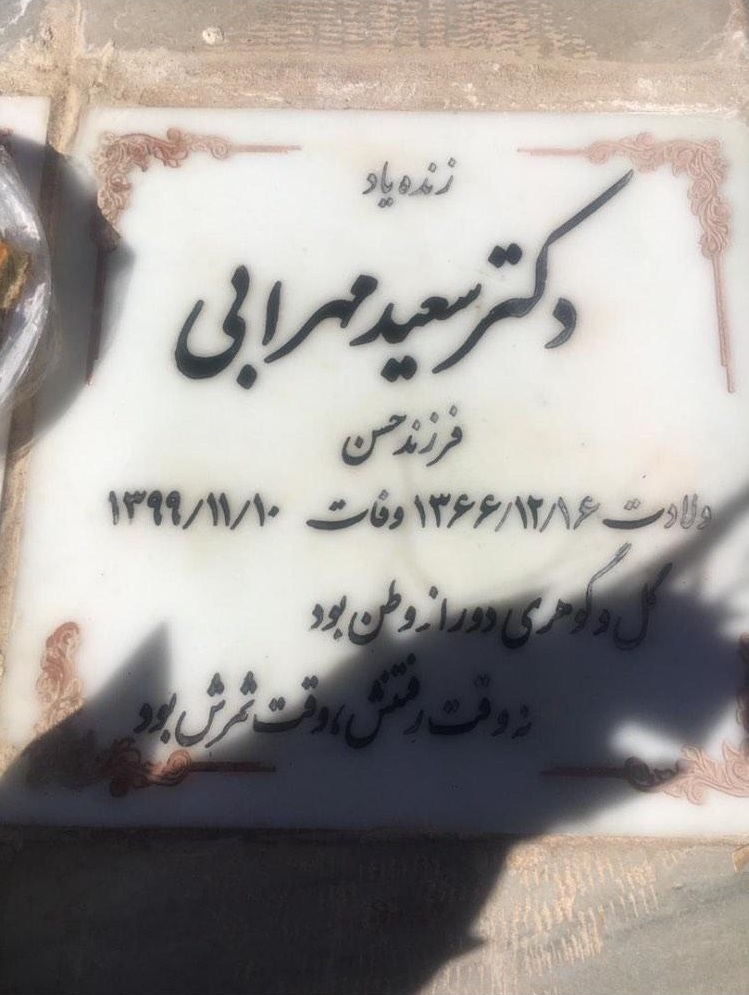 زنده یاد
دکتر سعید مهرابی
فرزند حسن
ولادت ۱۳۶۶/۱۲/۱۶ وفات ۱۳۹۹/۱۱/۱۰
گل و گوهری دور از وطن بود
نه وقت رفتنش، وقت ثمرش بود